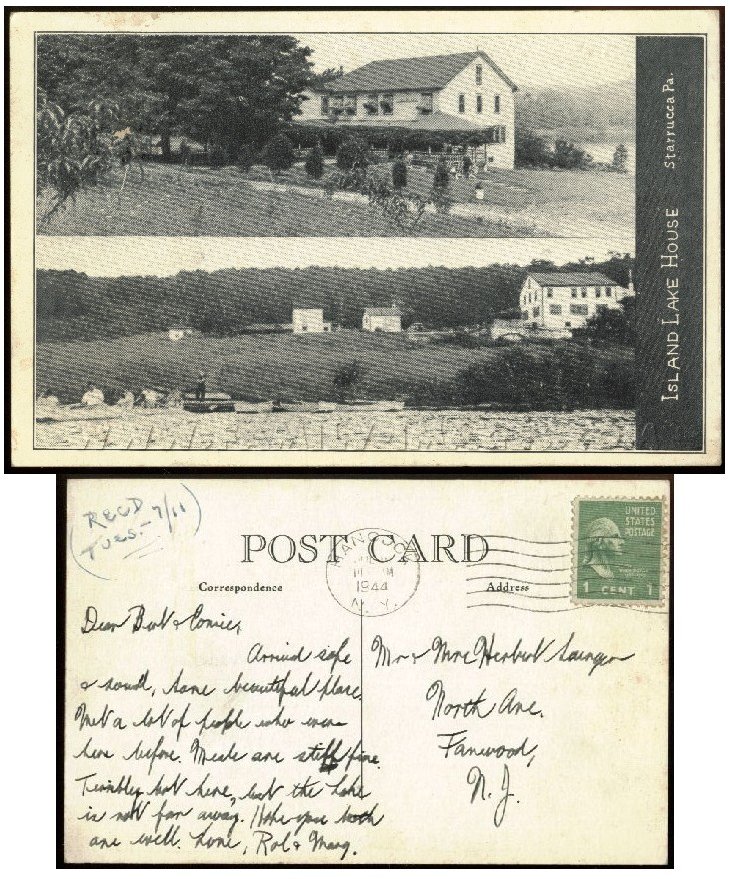 ISLAND LAKE HOUSE Starrucca Pa.
REC'D 7/11
TUES-
POST CARD
HANCOCK
1944
N.Y.
UNITED
STATES
POSTAGE
1 CENT 1
Correspondence
Address
Dear Bert & Connie,
Arrived safe
& sound, same beautiful place.
Met a lot of people who were
here before. Meals are still fine.
Terribly hot here, but the lake
is not far away. Hope you both
are well. Love, Rol & Marg.
Mr & Mrs Herbert
North Ave.
Fanwood,
N.J.